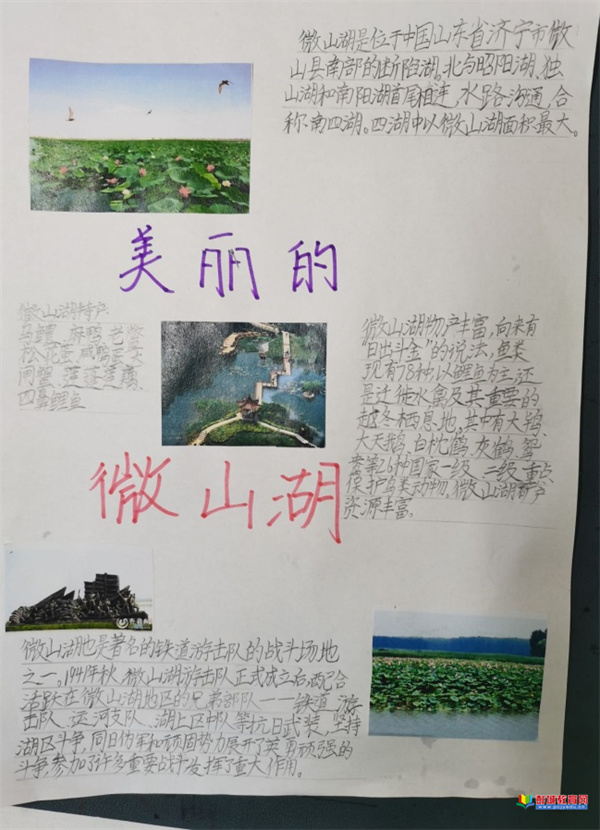 微山湖是位于中国山东省济宁市微
山县南部的断陷湖。北与昭阳湖、独
山湖和南阳湖首尾相连,水路沟通,合
称南四湖。四湖中以微山湖面积最大。
美丽的
微山湖特产
乌鳢、麻鸭、老鳖
松花蛋、咸鸭蛋、大
闸蟹、莲蓬莲藕、
四鼻鲤鱼
微山湖物产丰富,向来有
日出斗金"的说法,鱼类
现有78种,以鲤鱼为主,还
是迁徙水禽及其重要的
越冬栖息地,其中有大鸨、
大天鹅、白枕鹤、灰鹤、鸳
鸯等26种国家一级、二级重点
保护鸟类动物、微山湖矿产
资源丰富、
微山湖
微山湖也是著名的铁道游击队的战斗场地
之一。1941年秋,微山湖游击队正式成立后,配合
活跃在微山湖地区的兄弟部队——铁道游
击队、运河支队、湖上区中队等抗日武装,坚持
湖区斗争,同日伪军和顽固势力展开了英勇顽强的
斗争,参加了许多重要战斗发挥了重大作用。